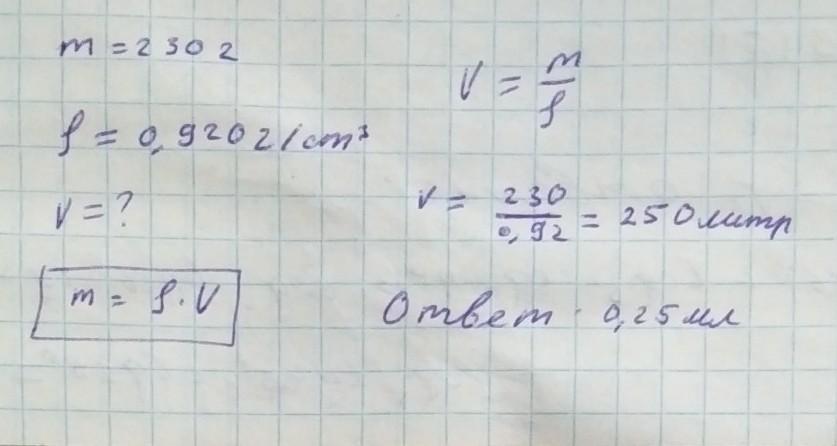 m = 230 г
ρ = 0,920 г/cm³
V = ?
m = ρ · V
V = m/ρ
V = 230/0,92 = 250 литр
Ответ · 0,25 мл